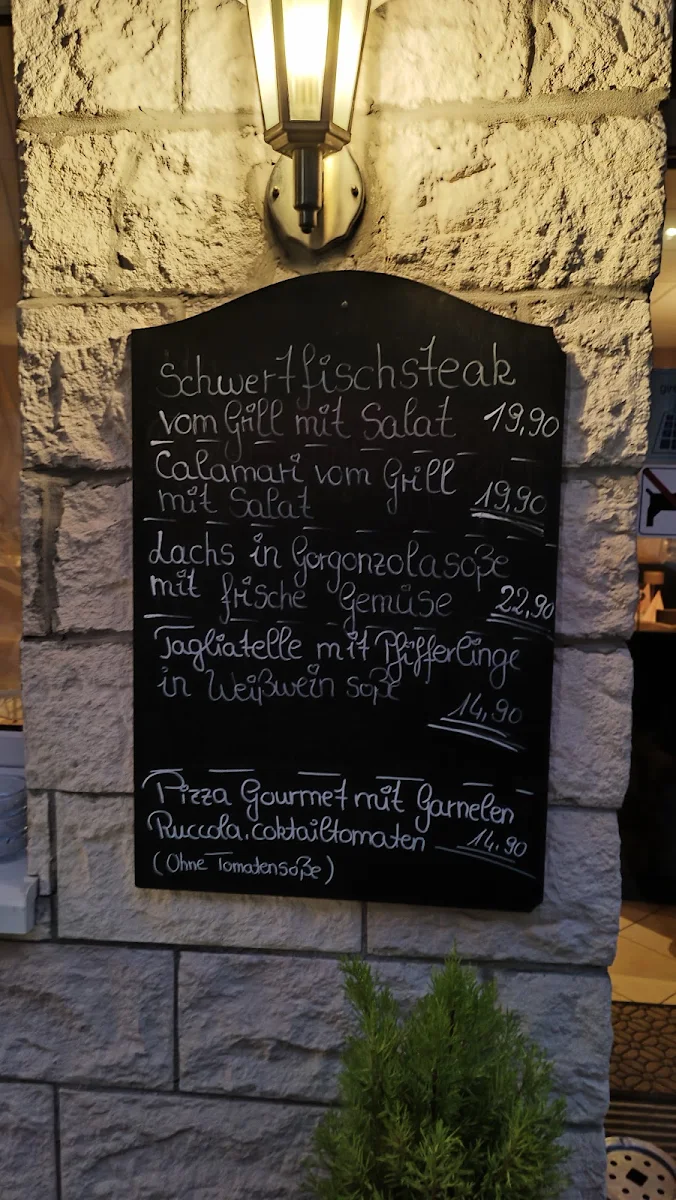 Schwertfischsteak
vom Grill mit Salat 19,90
Calamari vom Grill
mit Salat 19,90
Lachs in Gorgonzolasoße
mit frische Gemüse 22,90
Tagliatelle mit Pfifferlinge
in Weißwein soße
14,90
Pizza Gourmet mit Garnelen
Ruccola, coktailtomaten 14,90
(Ohne Tomatensoße)